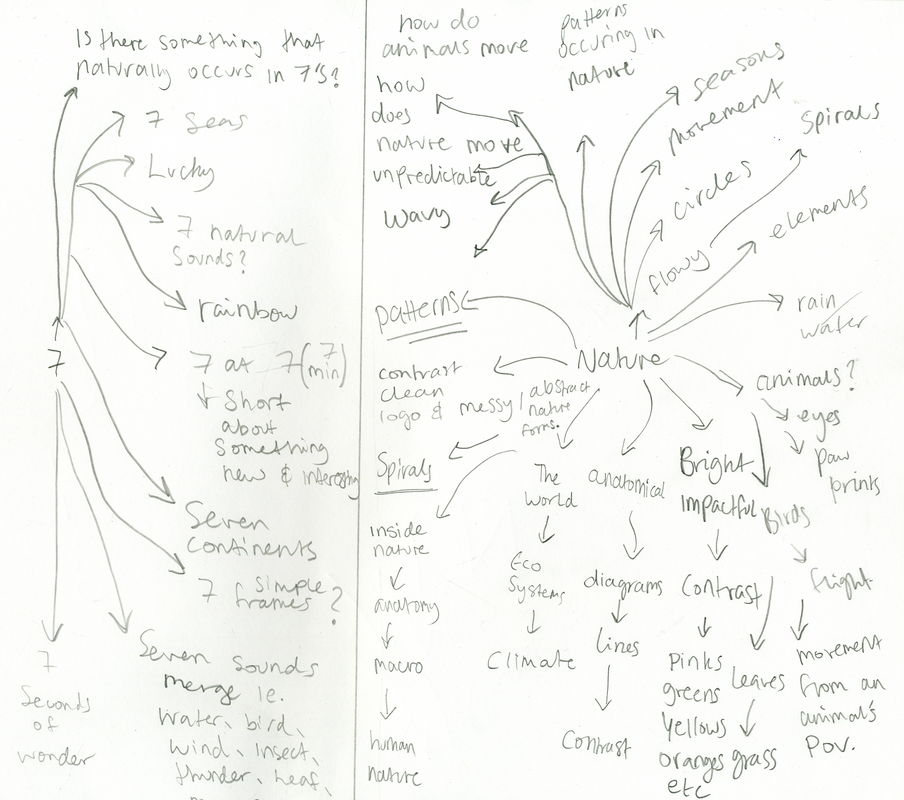 Is there something that
naturally occurs in 7's?
7 seas
Lucky
7 natural
sounds?
rainbow
7
7 at 7 (7 min)
short
about
something
new & interesting
Seven
continents
7 simple
frames?
7
Seconds
of
wonder
Seven sounds
merge ie.
water, bird,
wind, insect,
thunder, heat,
how do
animals move
patterns
occuring in
nature
how
does
nature move
unpredictable
wavy
seasons
movement
circles
flowy
spirals
elements
rain
water
patterns
Nature
contrast
clean
logo & messy /
abstract
nature
forms.
animals?
eyes
paw
prints
Spirals
The
world
anatomical
Bright
impactful
Birds
inside
nature
Eco
Systems
diagrams
Contrast
flight
anatomy
macro
human
nature
Climate
lines
Contrast
Pinks
greens
yellows
oranges
etc
leaves
grass
movement
from an
animal's
POV.